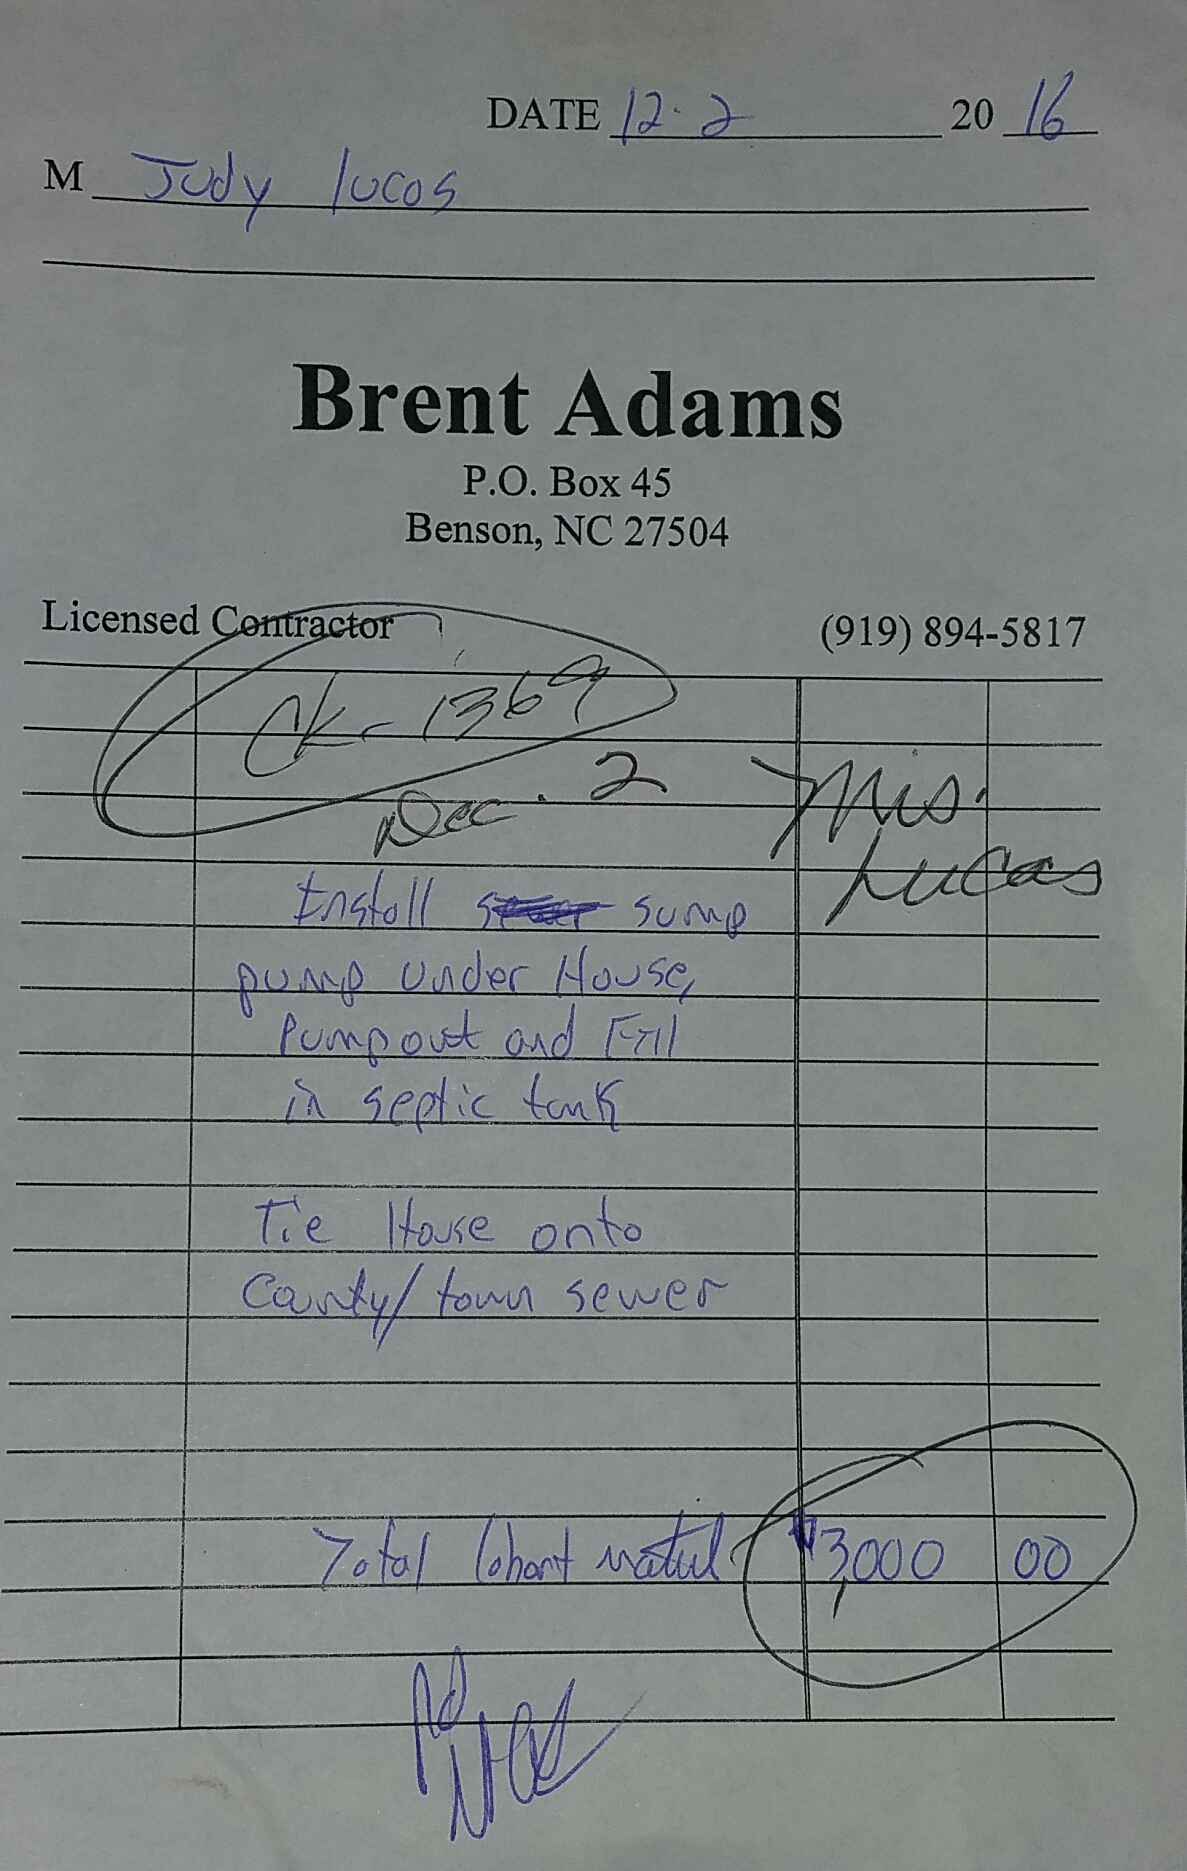 DATE 12-2 20 16
M Judy lucas
Brent Adams
P.O. Box 45
Benson, NC 27504
Licensed Contractor (919) 894-5817
CK- 1369
Dec. 2 Mis.
Lucas
Install sump
pump under House,
Pump out and Fill
in septic tank
Tie House onto
County/town sewer
Total $3,000 00